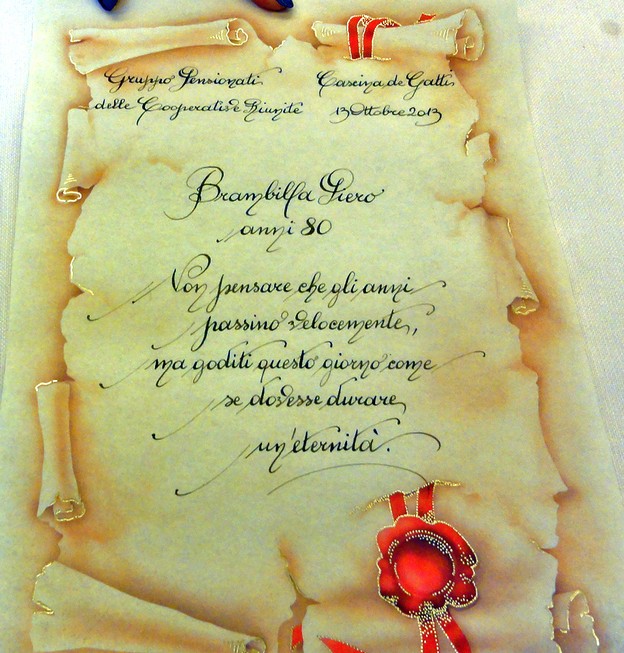 Gruppo Pensionati
delle Cooperative Riunite
Cascina de Gatti
13 Ottobre 2013
Brambilla Piero
anni 80
Non pensare che gli anni
passino velocemente,
ma goditi questo giorno come
se dovesse durare
un'eternità.